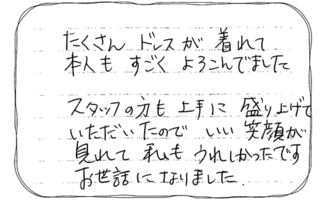 たくさん ドレスが 着れて
本人も すごく よろこんでました
スタッフの方も 上手に 盛り上げて
いただいたので いい 笑顔が
見れて 私も うれしかったです
お世話になりました.